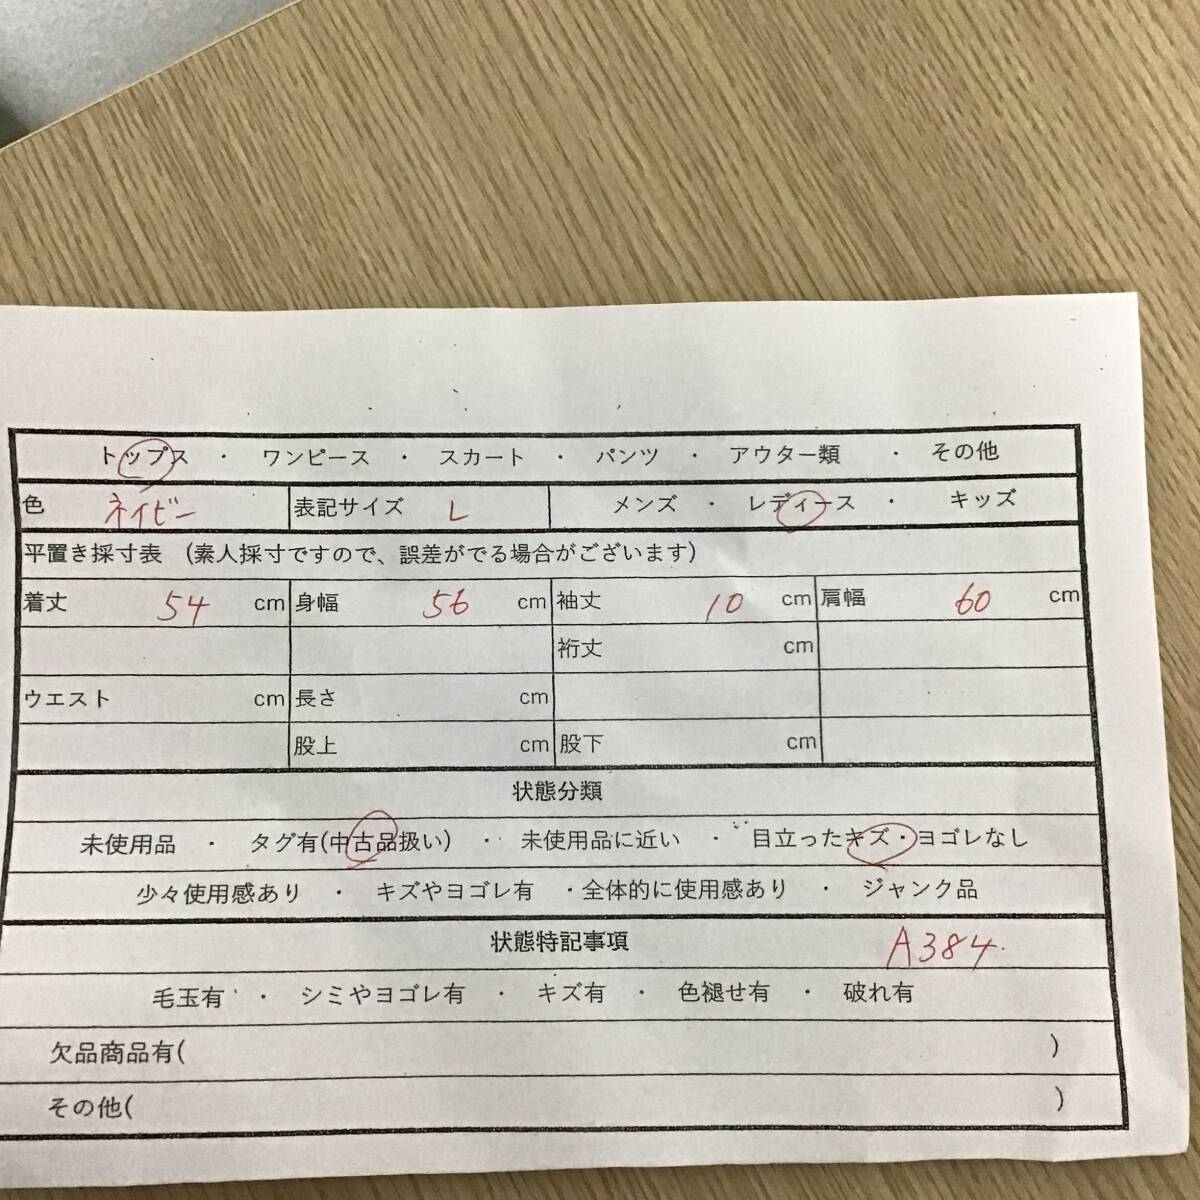 トップス ・ ワンピース ・ スカート ・ パンツ ・ アウター類 ・ その他
色 ネイビー 表記サイズ L メンズ ・ レディース ・ キッズ
平置き採寸表 （素人採寸ですので、誤差がでる場合がございます）
着丈 54 cm 身幅 56 cm 袖丈 10 cm 肩幅 60 cm
裄丈 cm
ウエスト cm 長さ cm
股上 cm 股下 cm
状態分類
未使用品 ・ タグ有(中古品扱い) ・ 未使用品に近い ・ 目立ったキズ・ヨゴレなし
少々使用感あり ・ キズやヨゴレ有 ・全体的に使用感あり ・ ジャンク品
状態特記事項 A384.
毛玉有 ・ シミやヨゴレ有 ・ キズ有 ・ 色褪せ有 ・ 破れ有
欠品商品有( )
その他( )